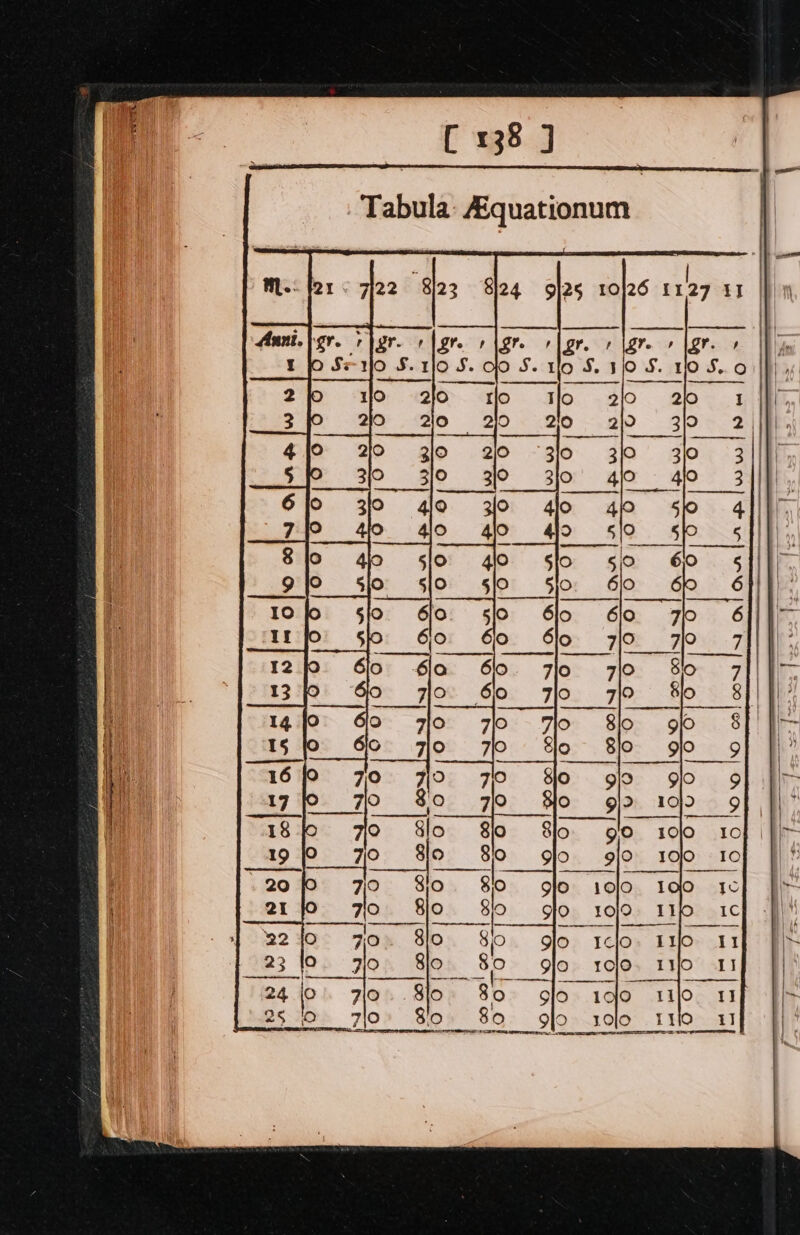 [ 138 ]
Tabula Æquationum
M. 21 7 22 8 23 8 24 9 25 10 26 11 27 11
Anni. gr. ' gr. ' gr. ' gr. ' gr. ' gr. ' gr. '
1 0 S. 1 0 S. 1 0 S. 0 0 S. 1 0 S. 1 0 S. 1 0 S. 0
2 0 1 0 2 0 1 0 1 0 2 0 2 0 1
3 0 2 0 2 0 2 0 2 0 2 0 3 0 2
4 0 2 0 3 0 2 0 3 0 3 0 3 0 3
5 0 3 0 3 0 3 0 3 0 4 0 4 0 3
6 0 3 0 4 0 3 0 4 0 4 0 5 0 4
7 0 4 0 4 0 4 0 4 0 5 0 5 0 5
8 0 4 0 5 0 4 0 5 0 5 0 6 0 5
9 0 5 0 5 0 5 0 5 0 6 0 6 0 6
10 0 5 0 6 0 5 0 6 0 6 0 7 0 6
11 0 5 0 6 0 6 0 6 0 7 0 7 0 7
12 0 6 0 6 0 6 0 7 0 7 0 8 0 7
13 0 6 0 7 0 6 0 7 0 7 0 8 0 8
14 0 6 0 7 0 7 0 7 0 8 0 9 0 8
15 0 6 0 7 0 7 0 8 0 8 0 9 0 9
16 0 7 0 7 0 7 0 8 0 9 0 9 0 9
17 0 7 0 8 0 7 0 8 0 9 0 10 0 9
18 0 7 0 8 0 8 0 8 0 9 0 10 0 10
19 0 7 0 8 0 8 0 9 0 9 0 10 0 10
20 0 7 0 8 0 8 0 9 0 10 0 10 0 10
21 0 7 0 8 0 8 0 9 0 10 0 11 0 10
22 0 7 0 8 0 8 0 9 0 10 0 11 0 11
23 0 7 0 8 0 8 0 9 0 10 0 11 0 11
24 0 7 0 8 0 8 0 9 0 10 0 11 0 11
25 0 7 0 8 0 8 0 9 0 10 0 11 0 11